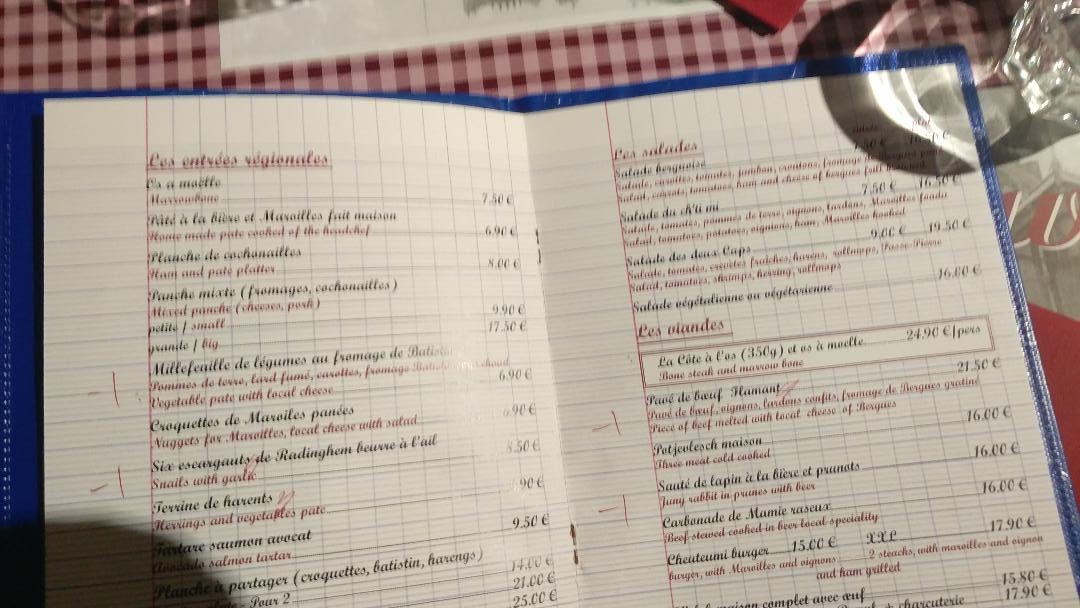 Les entrées régionales
Os a moëlle
Marrowbone 7.50 €
Pâté à la bière et Maroilles fait maison
Home made pate cooked of the headchef 6.90 €
Planche de cochonailles
Ham and paté platter 8.00 €
Panche mixte (fromages, cochonailles)
Mixed panche (cheeses, pork)
petite / small 9.90 €
grande / big 17.50 €
Millefeuille de légumes au fromage de
Pommes de terre, lard fumé, carottes, fromage
Vegetable paté with local cheese 6.90 €
Croquettes de Maroiles panées
Nuggets for Maroilles, local cheese with salad 6.90 €
Six escargauts de Radinghem beurre à l'ail
Snails with garlic 8.50 €
Terrine de harents 90 €
Herrings and vegetables pate
Tartare saumon avocat 9.50 €
Avocado salmon tartar
Planche à partager (croquettes, batistin, harengs)
14.00 €
Pour 2 21.00 €
25.00 €
Les salades
Salade berguoise 7.50 €
Salade, carottes, tomates, jambon, croutons, fromage
Salad, carrots, tomatoes, ham and cheese of bergues
Salade du ch'ti mi 7.50 € 16.50 €
Salade, tomates, pommes de terre, oignons, lardons, Maroilles fondu
Salad, tomatoes, potatoes, oignons, ham, Maroilles
Salade des deux Caps 9.00 € 19.50 €
Salade, tomates, crevettes fraîches, harens, rollmops, Passe-Pierre
Salad, tomatoes, shrimps, herring, rollmops
Salade végétalienne ou végétarienne 16.00 €
Les viandes
La Côte à l'os (350g) et os à moelle 24.90 €/pers
Bone steak and marrow bone
Pavé de bœuf Flamant 21.50 €
Pavé de bœuf, oignons, lardons confits, fromage de Bergues gratiné
Piece of beef melted with local cheese of Bergues
Potjevlesch maison 16.00 €
Three meat cold cooked
Sauté de lapin à la bière et prunots 16.00 €
Juny rabbit in prunes with beer
Carbonade de Mamie raseux 16.00 €
Beef stewed cooked in beer local speciality
Cheuteumi burger 15.00 € XXL 17.90 €
burger, with Maroilles and oignons 2 steacks, with maroilles and oignon
and ham grilled
maison complet avec œuf 15.80 €
+ charcuterie 17.90 €